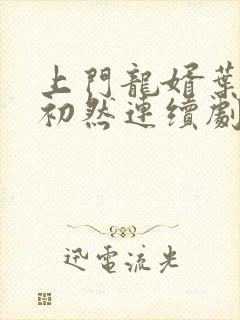 上門龍婿葉
初然連續劇
迅電流光